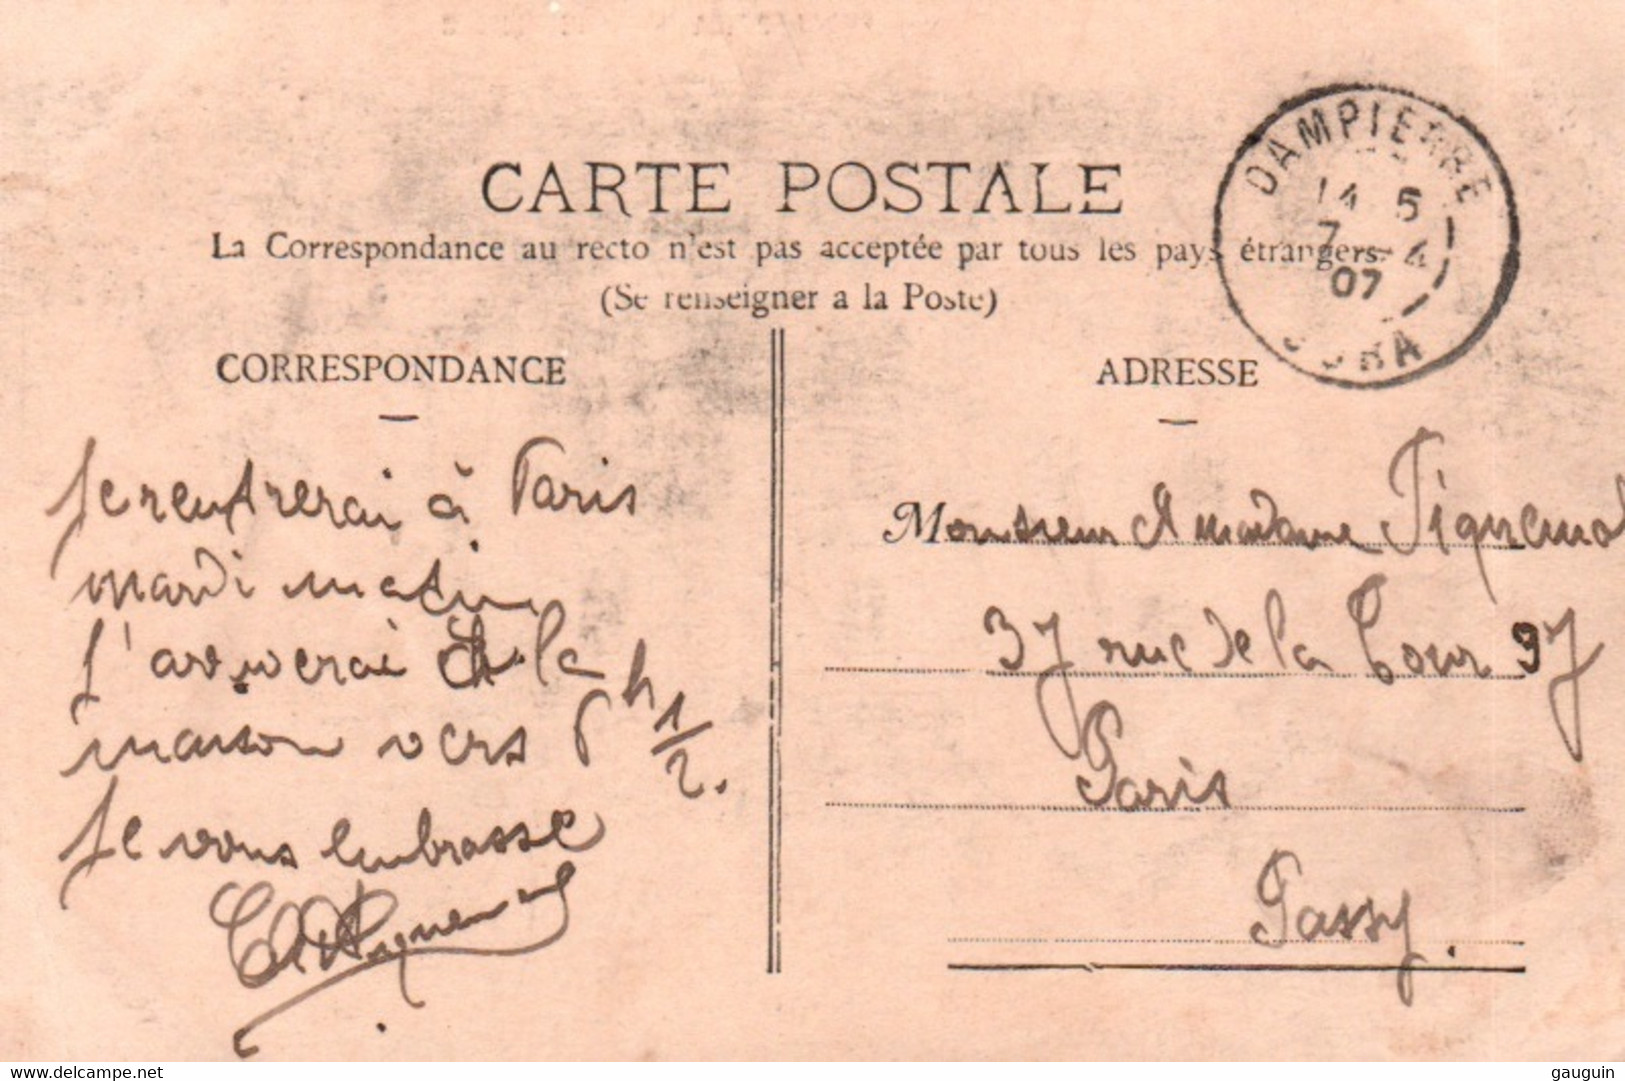 CARTE POSTALE
La Correspondance au recto n'est pas acceptée par tous les pays étrangers.
(Se renseigner a la Poste)
DAMPIERRE
14 5
7 - 4
07
JURA
CORRESPONDANCE
ADRESSE
Je rentrerai à Paris
mardi matin
j'arriverai à la
maison vers h 1/2.
Je vous embrasse
Monsieur & madame
37 rue de la Tour 37
Paris
Passy.
www.delcampe.net
gauguin